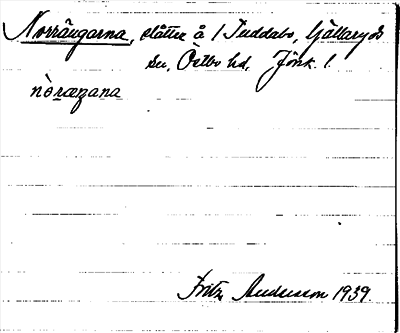 Norrängarna, slåtter å 1 Tuddabo, Gällaryds
sn, Östbo hd, Jönk. l.
nòræŋana
Fritz Andersson 1939.